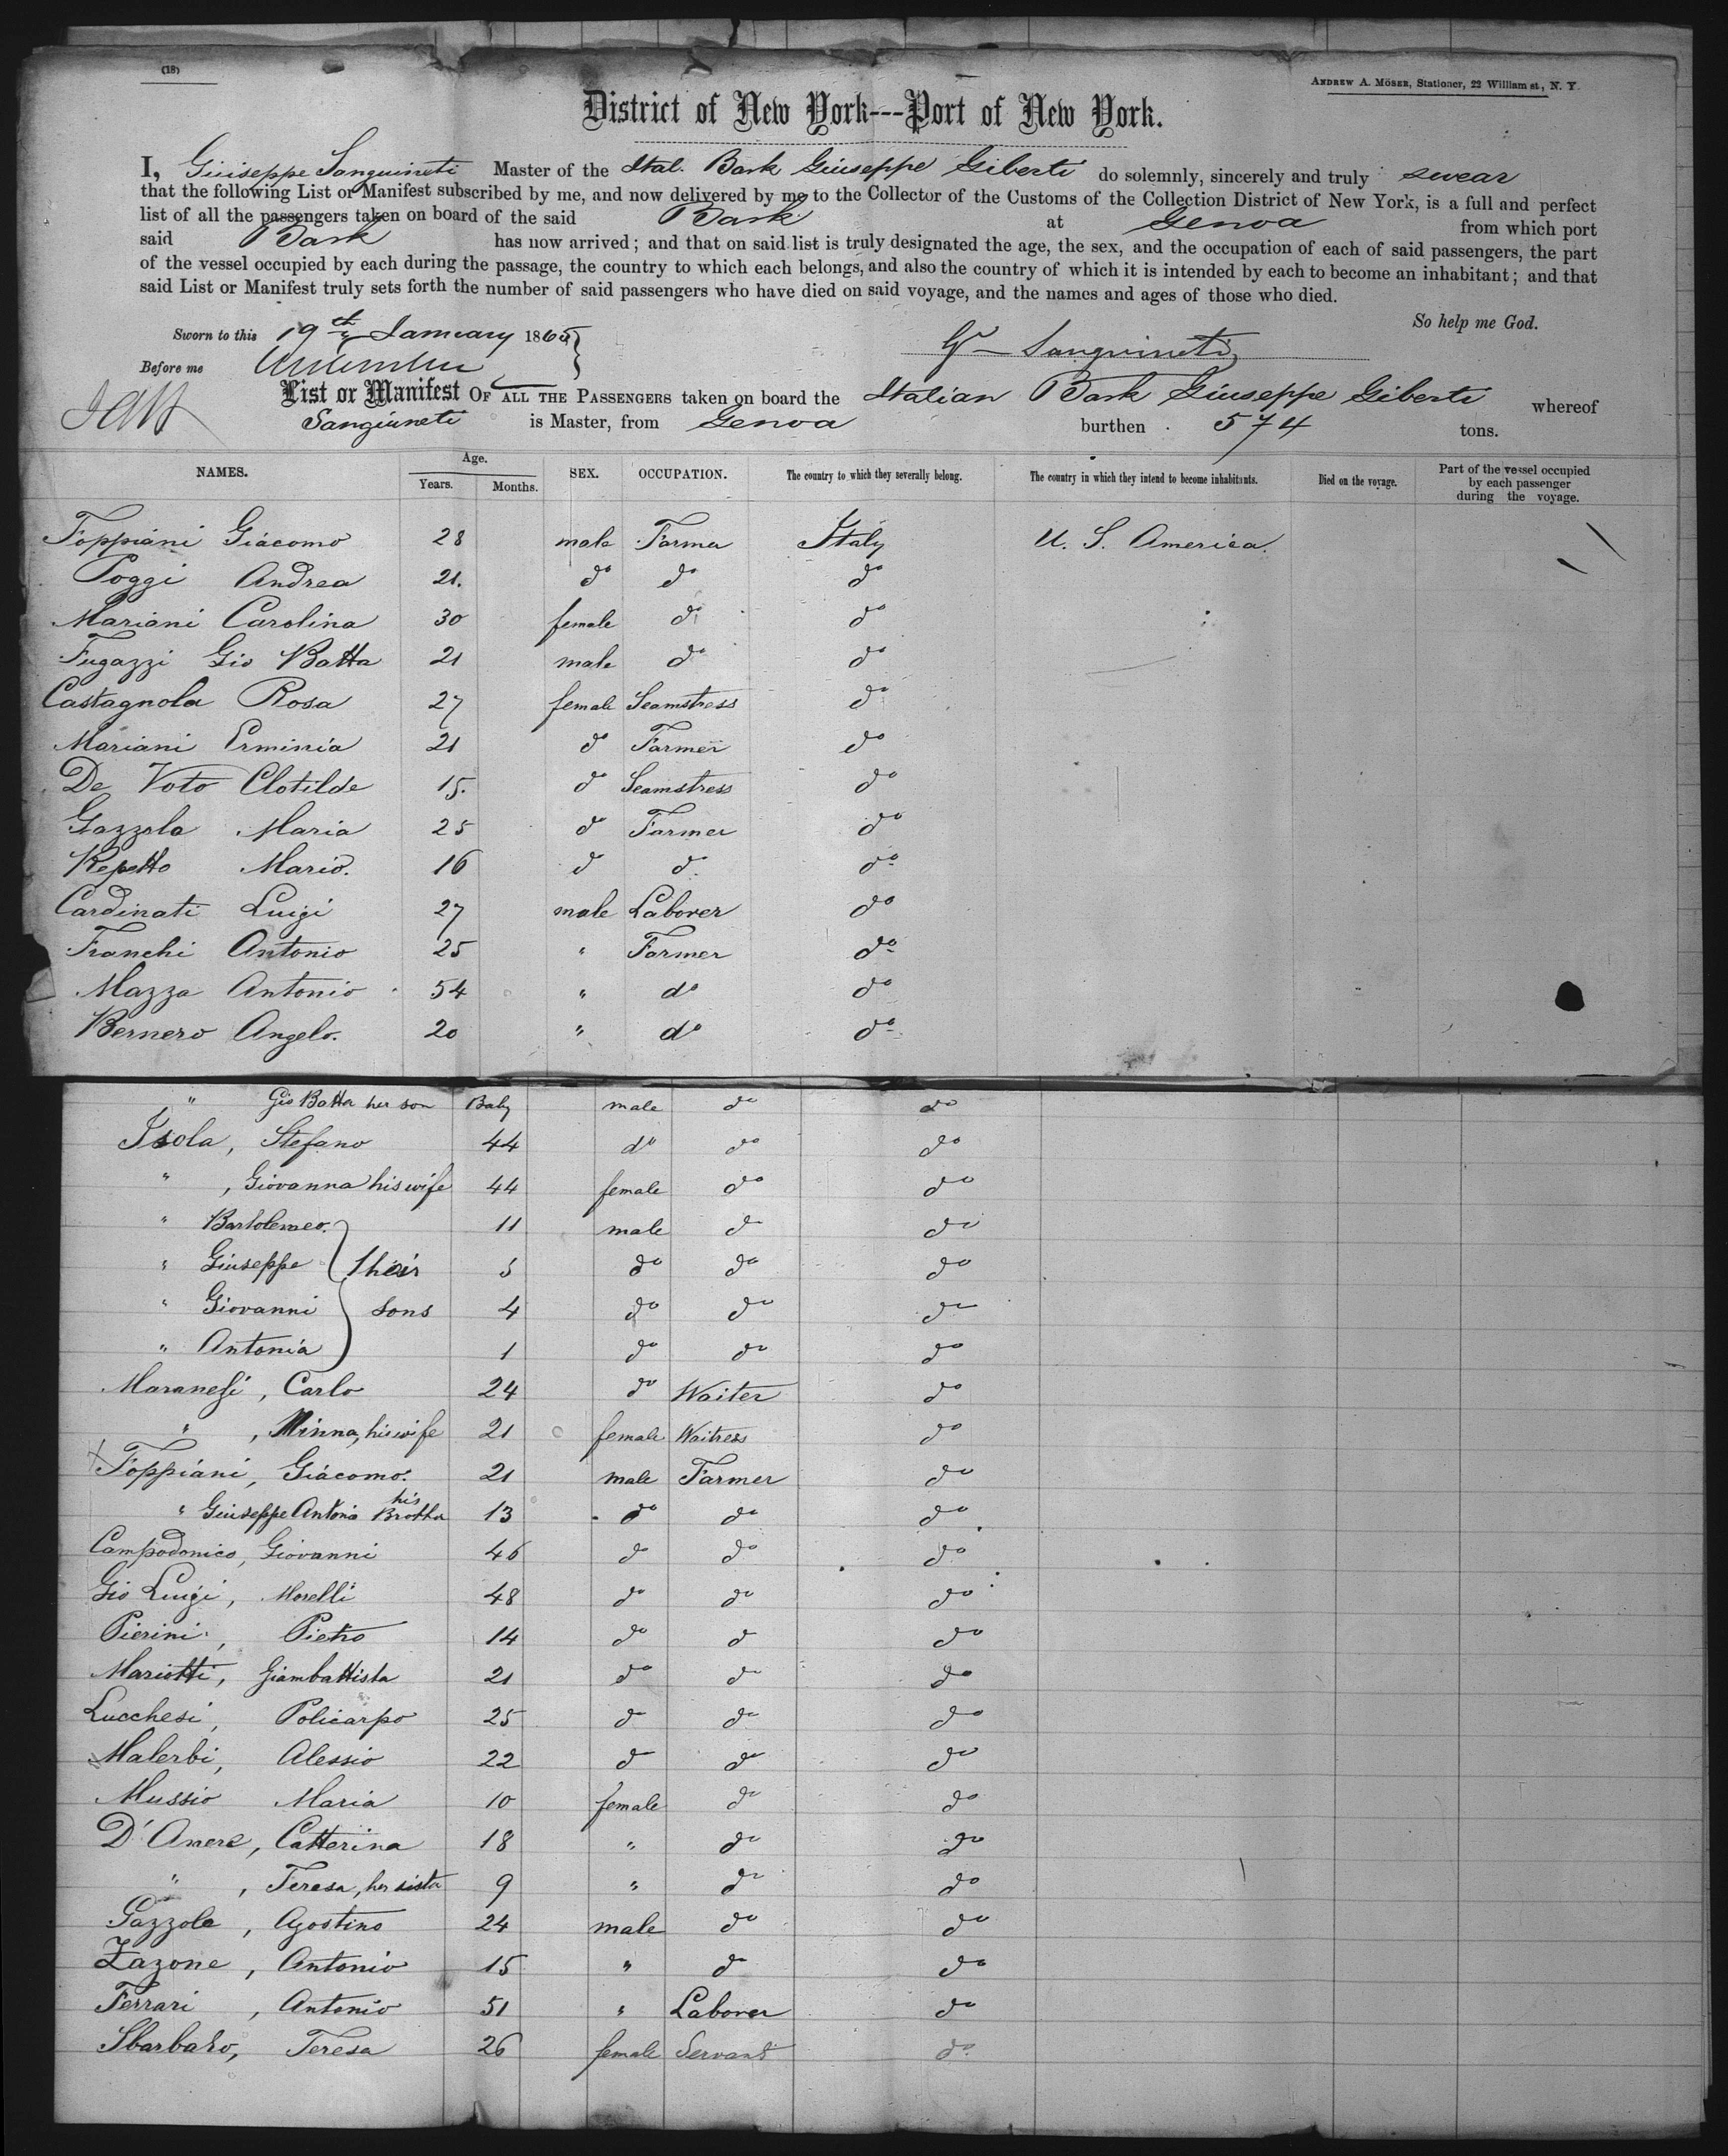 (18)
ANDREW A. MÖSER, Stationer, 22 William st, N. Y.
District of New York---Port of New York.
I, Giuseppe Sanguineti Master of the Ital. Bark Giuseppe Giberti do solemnly, sincerely and truly swear
that the following List or Manifest subscribed by me, and now delivered by me to the Collector of the Customs of the Collection District of New York, is a full and perfect
list of all the passengers taken on board of the said Bark at Genoa from which port
said Bark has now arrived; and that on said list is truly designated the age, the sex, and the occupation of each of said passengers, the part
of the vessel occupied by each during the passage, the country to which each belongs, and also the country of which it is intended by each to become an inhabitant; and that
said List or Manifest truly sets forth the number of said passengers who have died on said voyage, and the names and ages of those who died.
So help me God.
Sworn to this 19th January 1865
Gu Sanguineti
Before me
List or Manifest OF ALL THE PASSENGERS taken on board the Italian Bark Giuseppe Giberti whereof
Sanguineti is Master, from Genoa burthen 574 tons.
NAMES. Age. Years. Months. SEX. OCCUPATION. The country to which they severally belong. The country in which they intend to become inhabitants. Died on the voyage. Part of the vessel occupied by each passenger during the voyage.
Foppiani Giacomo 28 male Farmer Italy U. S. America.
Poggi Andrea 21. do do do
Mariani Carolina 30 female do do
Fugazzi Gio Batta 21 male do do
Castagnola Rosa 27 female Seamstress do
Mariani Erminia 21 do Farmer do
De Voto Clotilde 15. do Seamstress do
Gazzola Maria 25 do Farmer do
Repetto Maria. 16 do do do
Cardinati Luigi 27 male Laborer do
Franchi Antonio 25 " Farmer do
Mazza Antonio 54 " do do
Bernero Angelo. 20 " do do
" Gio Batta her son Baby male do do
Isola, Stefano 44 do do do
" , Giovanna his wife 44 female do do
" Bartolomeo. 11 male do do
" Giuseppe } their 5 do do do
" Giovanni } sons 4 do do do
" Antonia 1 do do do
Maranesi, Carlo 24 do Waiter do
" , Minna, his wife 21 female Waitress do
Foppiani, Giacomo. 21 male Farmer do
" Giuseppe Antonio his Brother 13 do do do
Campodonico, Giovanni 46 do do do
Gio Luigi, Morelli 48 do do do
Pierini, Pietro 14 do do do
Mariotti, Giambattista 21 do do do
Lucchesi, Policarpo 25 do do do
Malerbi, Alessio 22 do do do
Mussio Maria 10 female do do
D'Amere, Catterina 18 " do do
" , Teresa, her sister 9 " do do
Gazzola, Agostino 24 male do do
Zazone, Antonio 15 " do do
Ferrari, Antonio 51 " Laborer do
Sbarbaro, Teresa 26 female Servant do